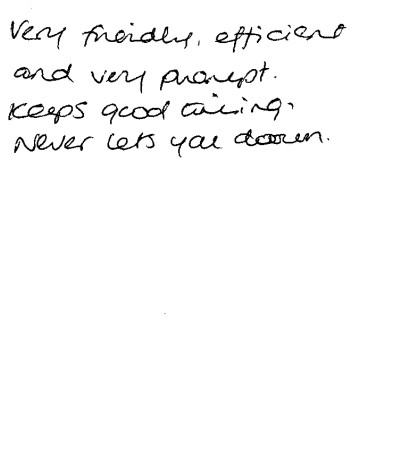 Very friendly, efficient
and very prompt.
Keeps good timing.
Never lets you down.